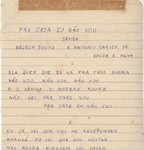 PRA CASA EU NÃO VOU
SAMBA
NELSON SOUTO E ANTONIO CARLOS DE
SOUZA E SILVA
ELA QUER QUE EU VÁ PRA CASA AGORA
NÃO VOU, NÃO VOU, NÃO VOU
SI O SAMBA SI ACABAR AGORA
NÃO SEI PRA ONDE VOU
PRA CASA EU NÃO VOU
EU JÁ SEI QUE VOU ME ARREPENDER
AMANHÃ EU SEI QUE VOU VOLTAR
MAS AGORA NINGUEM VAI